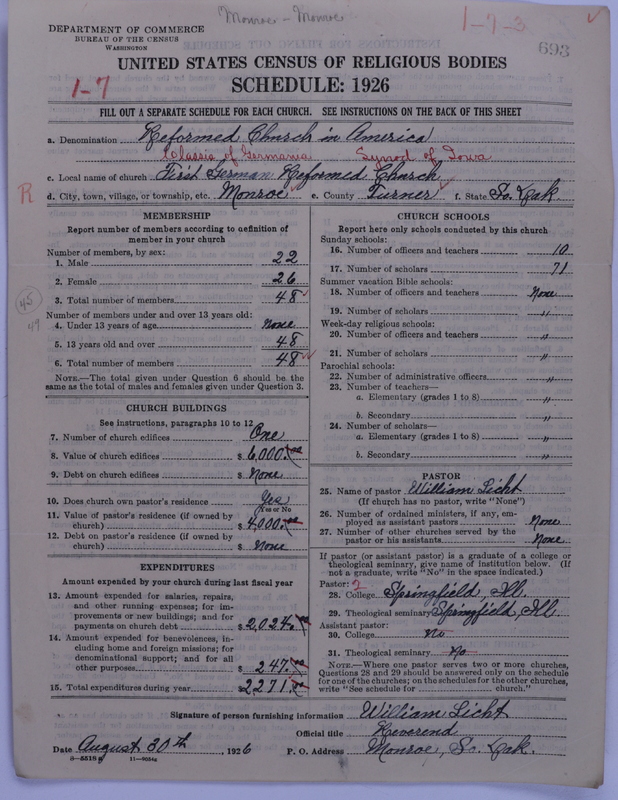 Monroe - Monroe
1-7-3
693
DEPARTMENT OF COMMERCE
BUREAU OF THE CENSUS
WASHINGTON
UNITED STATES CENSUS OF RELIGIOUS BODIES
1-7
SCHEDULE: 1926
FILL OUT A SEPARATE SCHEDULE FOR EACH CHURCH. SEE INSTRUCTIONS ON THE BACK OF THIS SHEET
a. Denomination Reformed Church in America
Classis of Germania Synod of Iowa
c. Local name of church First German Reformed Church
R
d. City, town, village, or township, etc. Monroe e. County Turner f. State So. Dak
MEMBERSHIP
Report number of members according to definition of
member in your church
Number of members, by sex:
1. Male 22
2. Female 26
3. Total number of members 48
45
49
Number of members under and over 13 years old:
4. Under 13 years of age None
5. 13 years old and over 48
6. Total number of members 48
NOTE.—The total given under Question 6 should be the
same as the total of males and females given under Question 3.
CHURCH BUILDINGS
See instructions, paragraphs 10 to 12
7. Number of church edifices One
8. Value of church edifices $ 6,000.00
9. Debt on church edifices $ None
10. Does church own pastor's residence Yes
Yes or No
11. Value of pastor's residence (if owned by
church) $ 4,000.00
12. Debt on pastor's residence (if owned by
church) $ None
EXPENDITURES
Amount expended by your church during last fiscal year
13. Amount expended for salaries, repairs,
and other running expenses; for im-
provements or new buildings; and for
payments on church debt $ 2,024.00
14. Amount expended for benevolences, in-
cluding home and foreign missions; for
denominational support; and for all
other purposes $ 247.00
15. Total expenditures during year $ 2271.00
CHURCH SCHOOLS
Report here only schools conducted by this church
Sunday schools:
16. Number of officers and teachers 10
17. Number of scholars 71
Summer vacation Bible schools:
18. Number of officers and teachers None
19. Number of scholars "
Week-day religious schools:
20. Number of officers and teachers "
21. Number of scholars "
Parochial schools:
22. Number of administrative officers "
23. Number of teachers—
a. Elementary (grades 1 to 8) "
b. Secondary "
24. Number of scholars—
a. Elementary (grades 1 to 8) "
b. Secondary "
PASTOR
25. Name of pastor William Licht
(If church has no pastor, write "None")
26. Number of ordained ministers, if any, em-
ployed as assistant pastors None
27. Number of other churches served by the
pastor or his assistants None
If pastor (or assistant pastor) is a graduate of a college or
theological seminary, give name of institution below. (If
not a graduate, write "No" in the space indicated.)
Pastor: 2
28. College Springfield, Ill.
29. Theological seminary Springfield, Ill
Assistant pastor:
30. College No
31. Theological seminary No
NOTE.—Where one pastor serves two or more churches,
Questions 28 and 29 should be answered only on the schedule
for one of the churches; on the schedules for the other churches,
write "See schedule for church."
Signature of person furnishing information William Licht
Official title Reverend
Date August 30th, 1926 P. O. Address Monroe, So. Dak.
8-5518 11-9034a